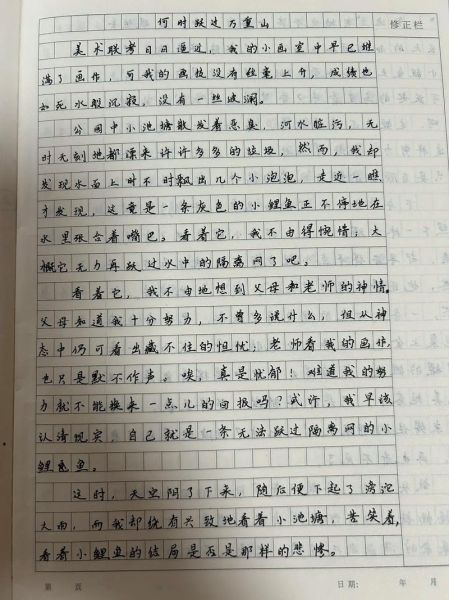 何时跃过万重山
修正栏
美术联考日日逼近，我的小画室中早已堆
满了画作，可我的画技没有丝毫上升，成绩也
如死水般沉寂，没有一丝波澜。
公园中小池塘散发着恶臭，河水脏污，无
时无刻地都漂来许许多多的垃圾，然而，我却
发现水面上时不时飘出几个小泡泡，走近一瞧
才发现，这竟是一条灰色的小鲤鱼正不停地在
水里张合着嘴巴。看着它，我不由得惋惜，大
概它无力再跃过水中的隔离网了吧。
看着它，我不由地想到父母和老师的神情，
父母知道我十分努力，不曾多说什么，但从神
态中仍可看出藏不住的担忧，老师看我的画作
也只是默不作声。唉，真是忧郁！难道我的努
力就不能换来一点儿的回报吗？或许，我早该
认清现实，自己就是一条无法跃过隔离网的小
鲤鱼。
这时，天空阴了下来，随后便下起了滂沱
大雨，而我却饶有兴致地看着小池塘，苦笑着，
看看小鲤鱼的结局是否是那样的悲惨。
第 页 日期: 年 月